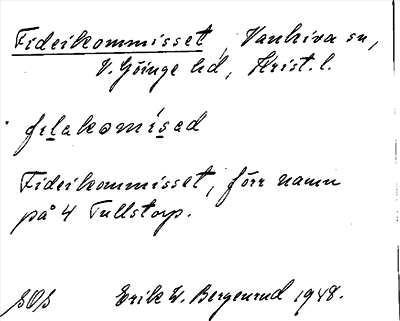 Fideikommisset, Vankiva sn,
V. Göinge hd, Krist. l.
Fideikommisset, förr namn
på 4 Tullstorp.
Erik W. Bergenrud 1948.